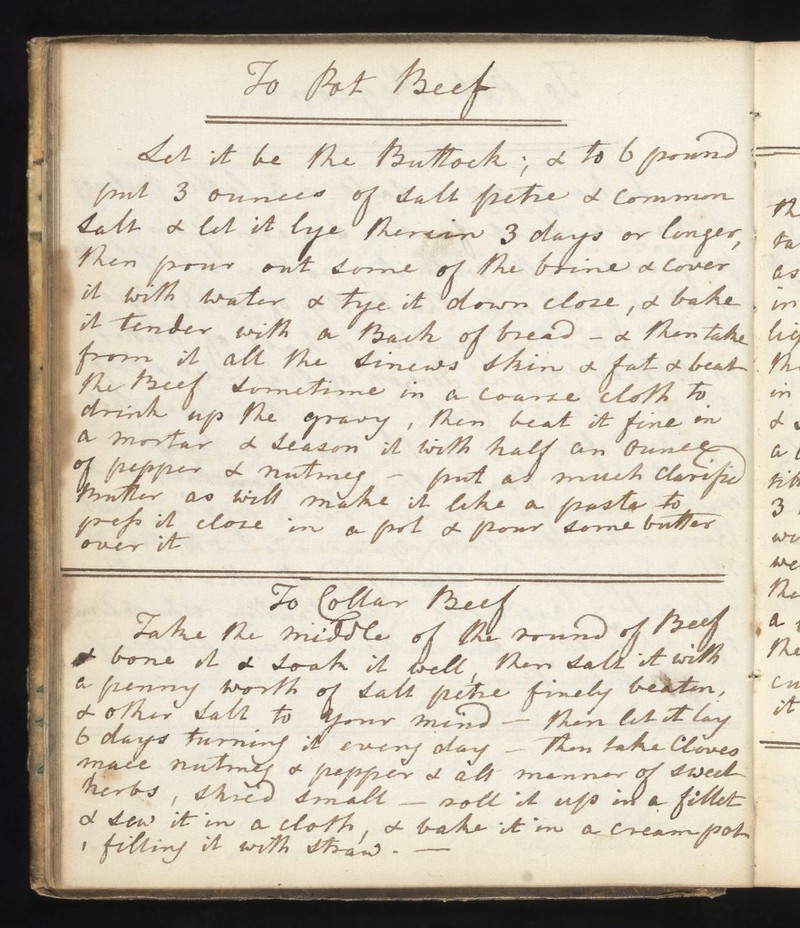 To Pot Beef
Let it be the Buttock; & to 6 pound
put 3 ounces of salt petre & common
salt & let it lye therein 3 days or longer,
then pour out some of the brine & cover
it with water & tye it down close, & bake
it tender with a Bach of bread - & then take
from it all the sinews skin & fat & beat
the Beef sometime in a coarse cloth to
drink up the gravy, then beat it fine in
a mortar & season it with half an ounce
of pepper & nutmeg - put as much clarified
Butter as will make it like a paste to
press it close in a pot & pour some butter
over it
To Collar Beef
Take the middle of the round of Beef
& bone it & soak it well, then salt it with
a penny worth of salt petre finely beaten,
& other salt to your mind - then let it lay
6 days turning it every day - then take Cloves
mace nutmeg & pepper & all manner of sweet
herbs, shred small - roll it up in a fillet
& sew it in a cloth, & bake it in a cream pot
, filling it with straw. -
Th
ta
as
in
in
&
a
3
we
the
a
the
cu
it